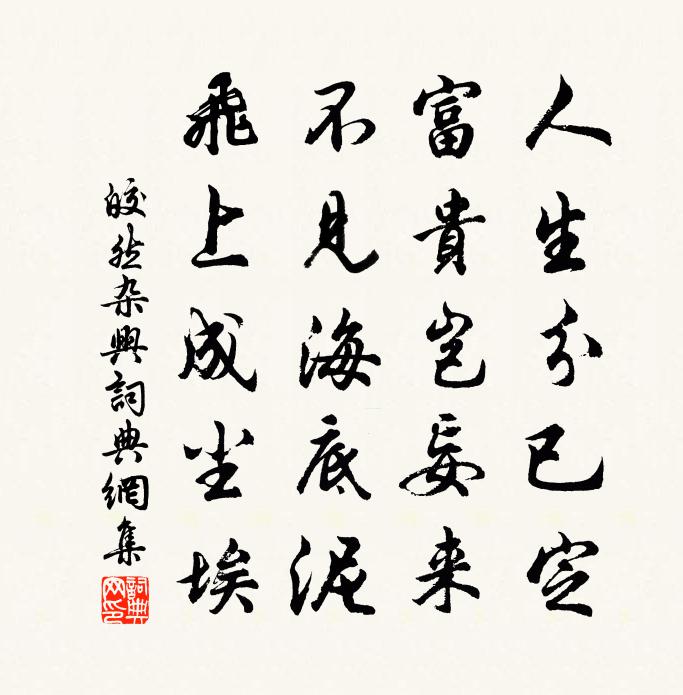 人生分已定
富貴岂妄来
不見海底泥
飛上成尘埃
皎然杂興詞典網集
詞典网印